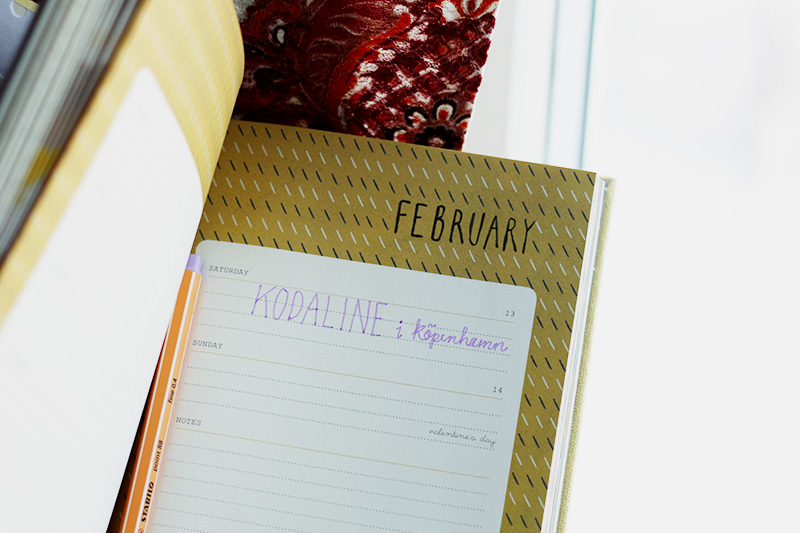 FEBRUARY
SATURDAY
13
KODALINE i köpenhamn
SUNDAY
14
valentine's day
NOTES
STABILO point 88 fine 0,4